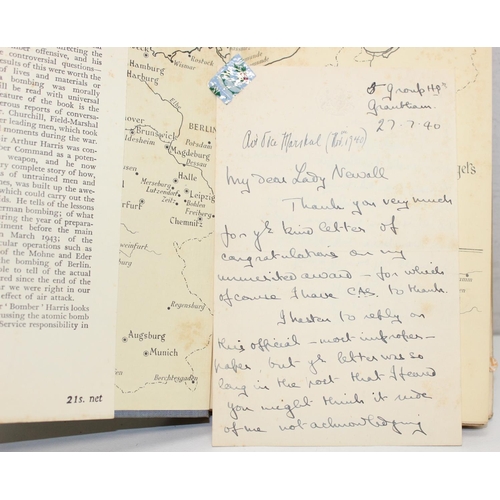 affecting the
ber offensive, and his
controversial questions—
of lives and materials or
bombing was morally
ll be read with universal
eature of the book is the
erous reports of conversa-
. Churchill, Field-Marshal
er leading men, which took
moments during the war.
ir Arthur Harris was con-
ber Command as a poten-
weapon, and he now
mplete story of how,
of untrained men and
ns, was built up the awe-
which could carry out the
Germany. He tells of the lessons
erman bombing; of what
uring the year of prepara-
riment before the main
March 1943; of the
cular operations such as
of the Mohne and Eder
he bombing of Berlin.
ble to tell of the actual
red since the end of the
r we were right in our
effect of air attack.
'Bomber' Harris looks
cussing the atomic bomb
Service responsibility in
21s. net
Rostock
Wismar
Hamburg
Harburg
BERLIN
Potsdam
Brunswick
Magdeburg
Dessau
Halle
Merseburg
Leipzig
Lutzendorf
Bohlen
Zeitz
Freiburg
Erfurt
Chemnitz
Schweinfurt
Regensburg
Augsburg
Munich
Berchtesgaden
5 Group HQrs
Grantham
27-7-40
Air Vice Marshal (Oct. 1940)
My dear Lady Newall
Thank you very much
for yr kind letter of
congratulations on my
unmerited award – for which
of course I have C.A.S. to thank.
I hasten to reply on
this official – most improper –
paper, but yr letter was so
long in the post that I feared
you might think it rude
of me not acknowledging